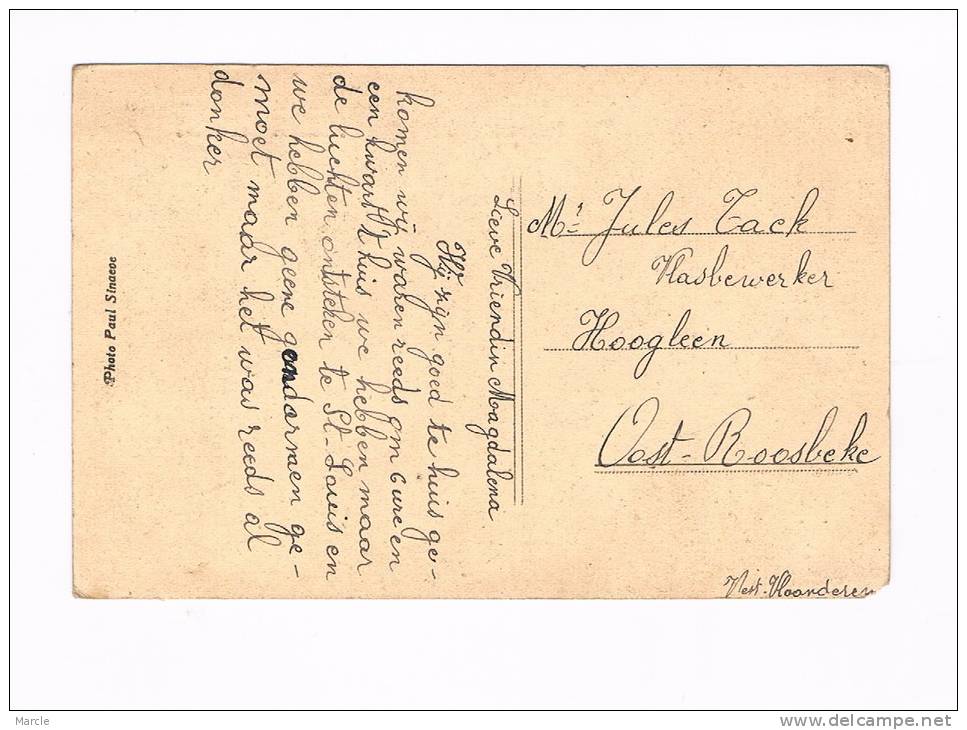 Lieve Vriendin Magdalena
Wij zijn goed te huis ge-
komen wij waren reeds om 6 ure en
een kwart 't huis we hebben maar
de luchten ontsteken te St-Louis en
we hebben geene gendarmen ge-
moet maar het was reeds al
donker
Mr Jules Tack
Vlasbewerker
Hoogleen
Oost-Roosbeke
West-Vlaanderen
Photo Paul Sinaeoe
Marcle
www.delcampe.net